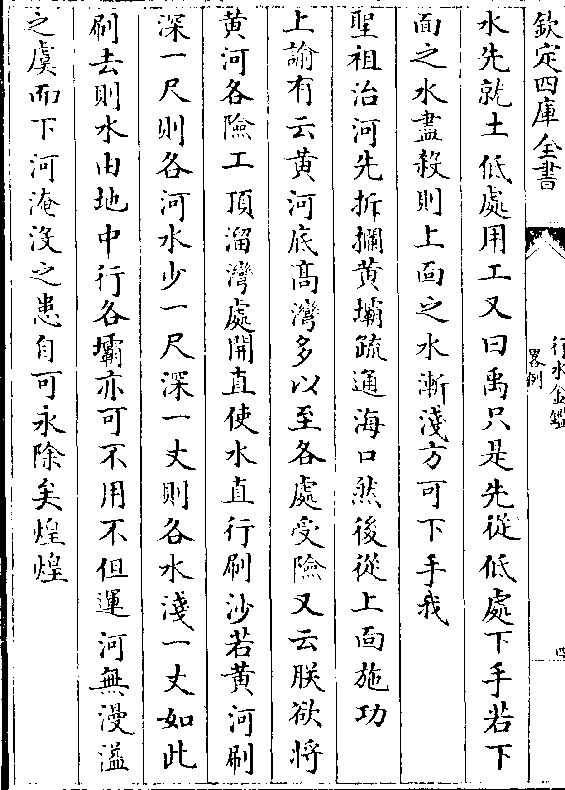 欽定四庫全書
行水金鑑
畧例
四
水先就土低處用工又曰禹只是先從低處下手若下
面之水盡殺則上面之水漸淺方可下手我
聖祖治河先拆攔黄壩疏通海口然後從上面施功
上諭有云黄河底髙灣多以至各處受險又云朕欲将
黄河各險工頂溜灣處開直使水直行刷沙若黄河刷
深一尺則各河水少一尺深一丈則各水淺一丈如此
刷去則水由地中行各壩亦可不用不但運河無漫溢
之虞而下河淹沒之患自可永除矣煌煌